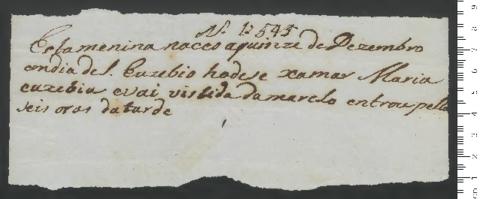 N. 1545
Esta menina naceo a quinze de Dezembro
em dia de S. Euzebio hadese xamar Maria
euzebia e vai vistida damarelo entrou pellas
seis oras da tarde